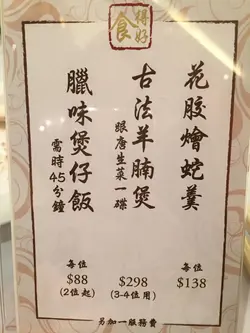 食得好
花胶燴蛇羹
每位
$138
古法羊腩煲
跟唐生菜一碟
$298
(3-4位用)
臘味煲仔飯
需時45分鐘
每位
$88
(2位起)
另加一服務費